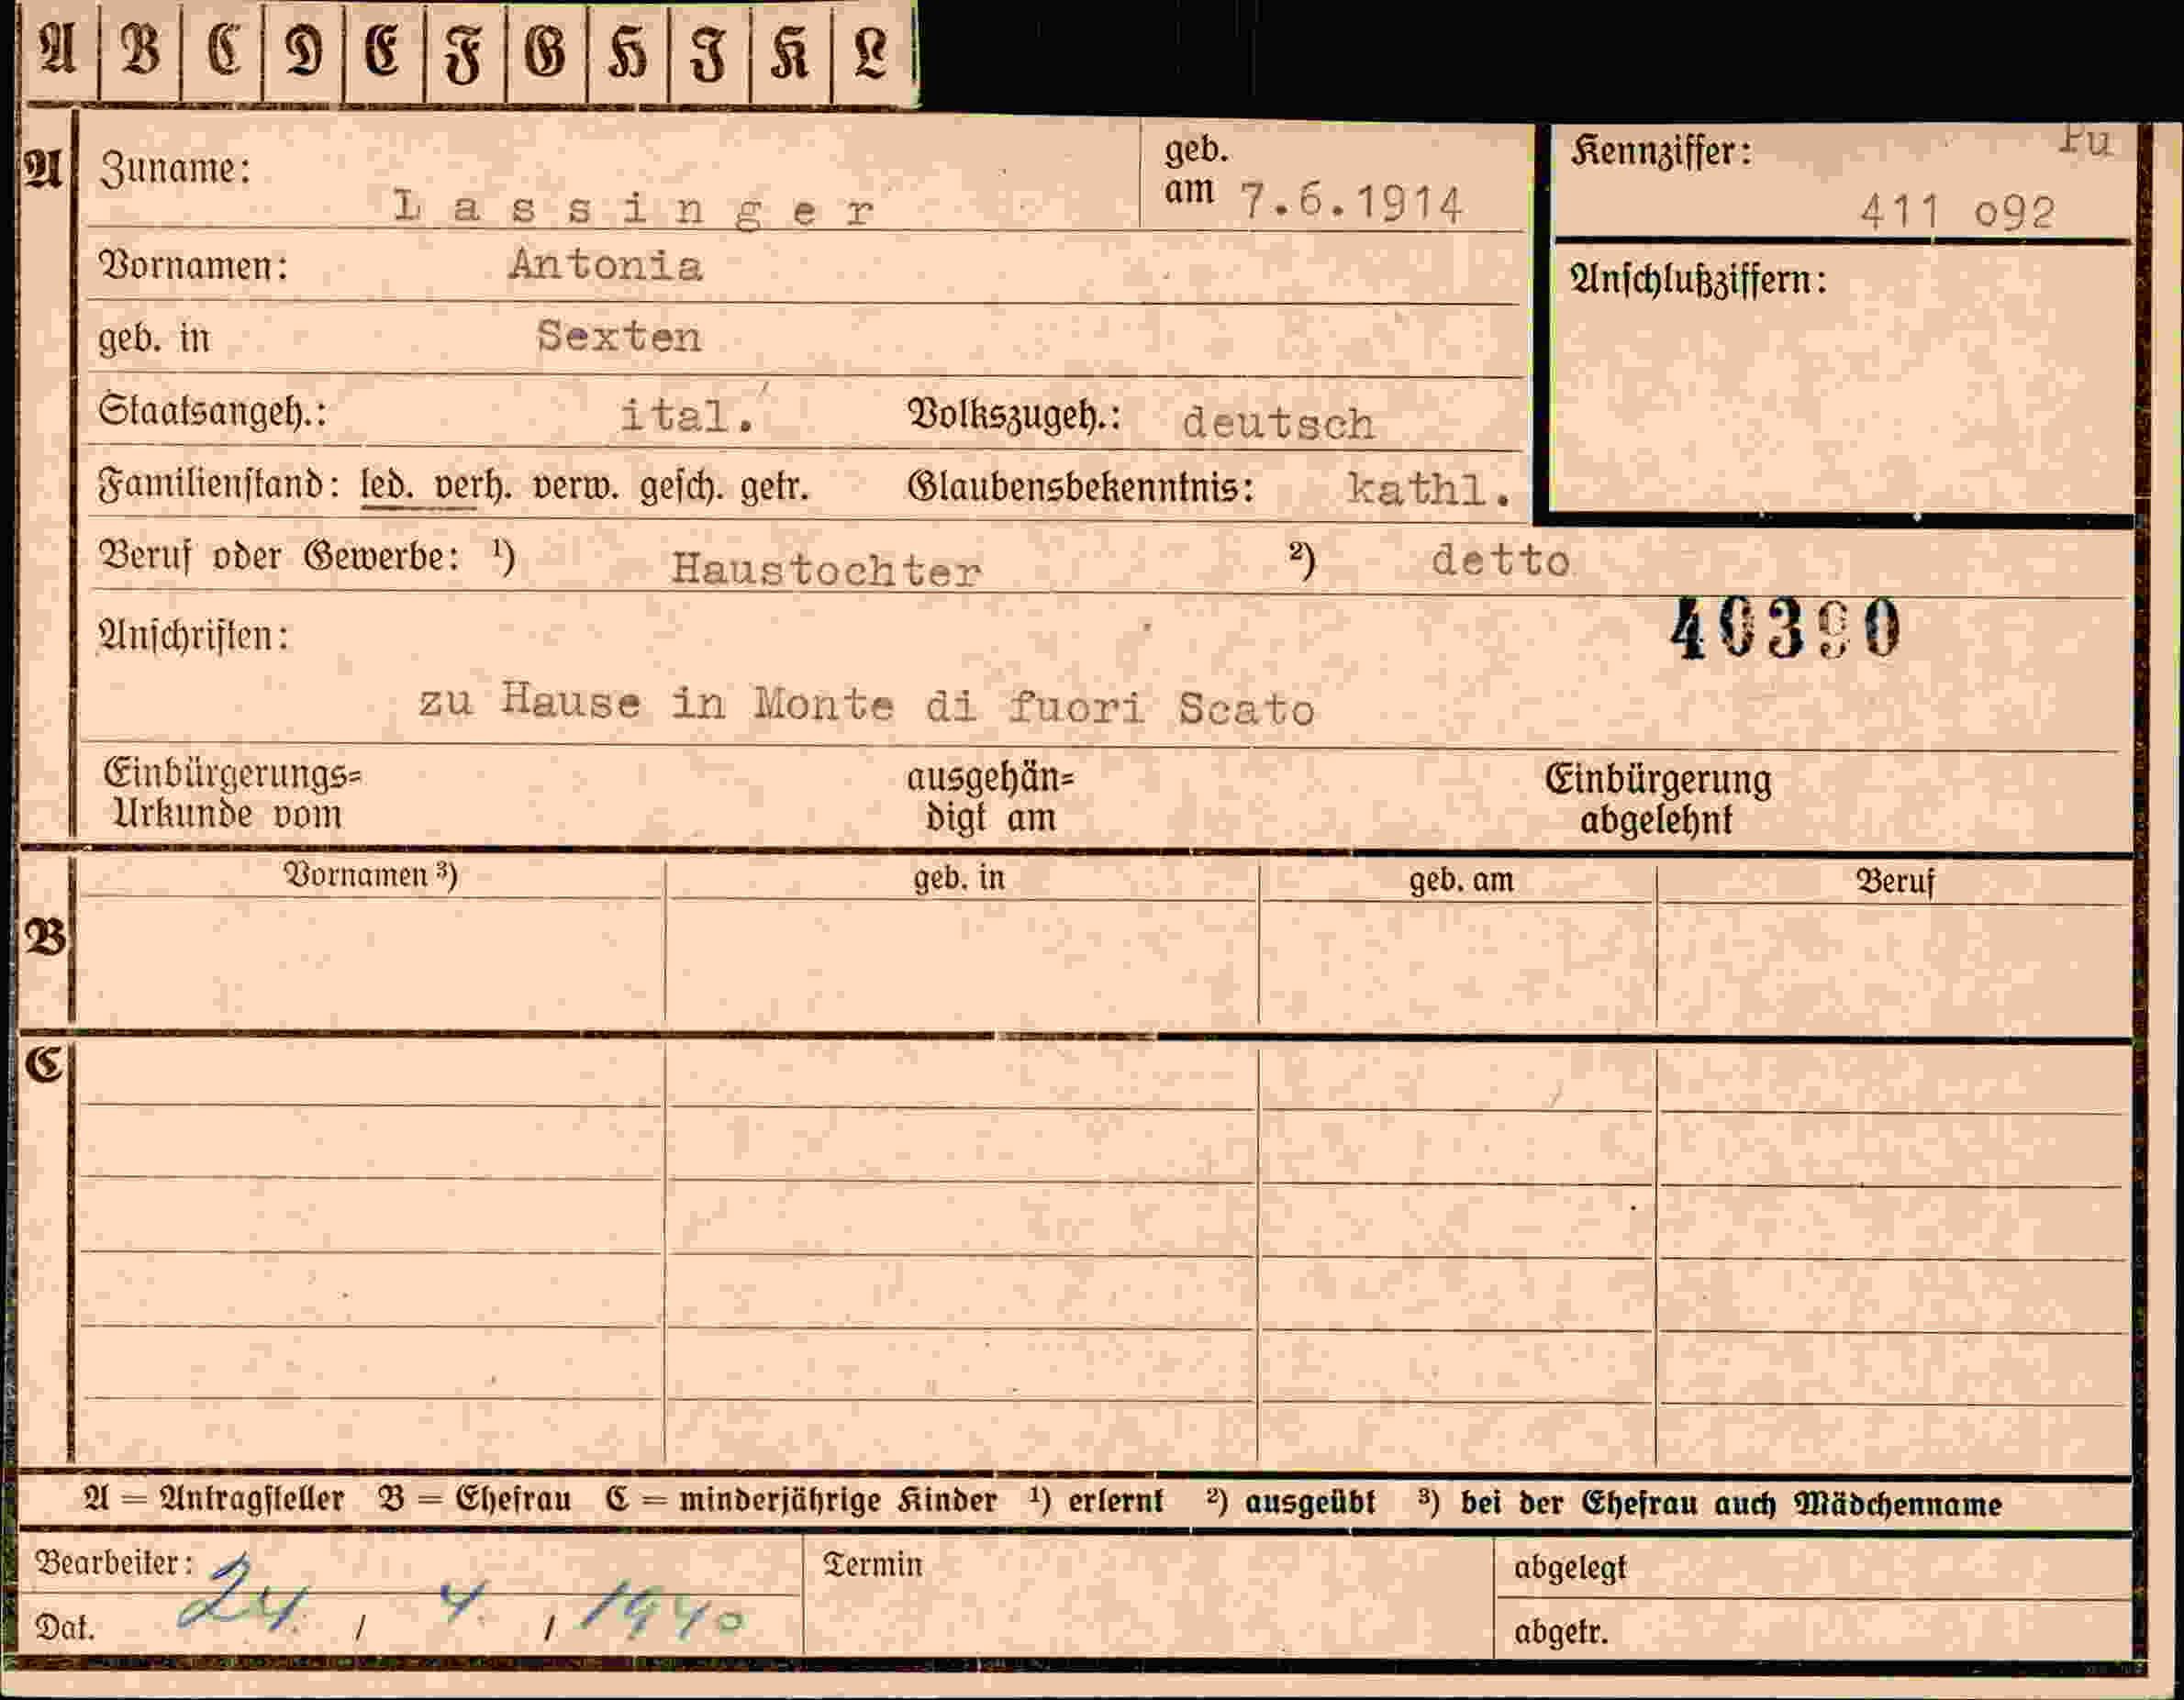 A B C D E F G H I K L
A Zuname: Lassinger geb. am 7.6.1914
Kennziffer: Pu
411 o92
Vornamen: Antonia
Anschlußziffern:
geb. in Sexten
Staatsangeh.: ital. Volkszugeh.: deutsch
Familienstand: led. verh. verw. gesch. getr. Glaubensbekenntnis: kathl.
Beruf oder Gewerbe: ¹) Haustochter ²) detto
40390
Anschriften:
zu Hause in Monte di fuori Scato
Einbürgerungs= ausgehän= Einbürgerung
Urkunde vom digt am abgelehnt
Vornamen ³) geb. in geb. am Beruf
B
C
A = Antragsteller B = Ehefrau C = minderjährige Kinder ¹) erlernt ²) ausgeübt ³) bei der Ehefrau auch Mädchenname
Bearbeiter: Termin abgelegt
Dat. 24. / 4. / 1940 abgetr.